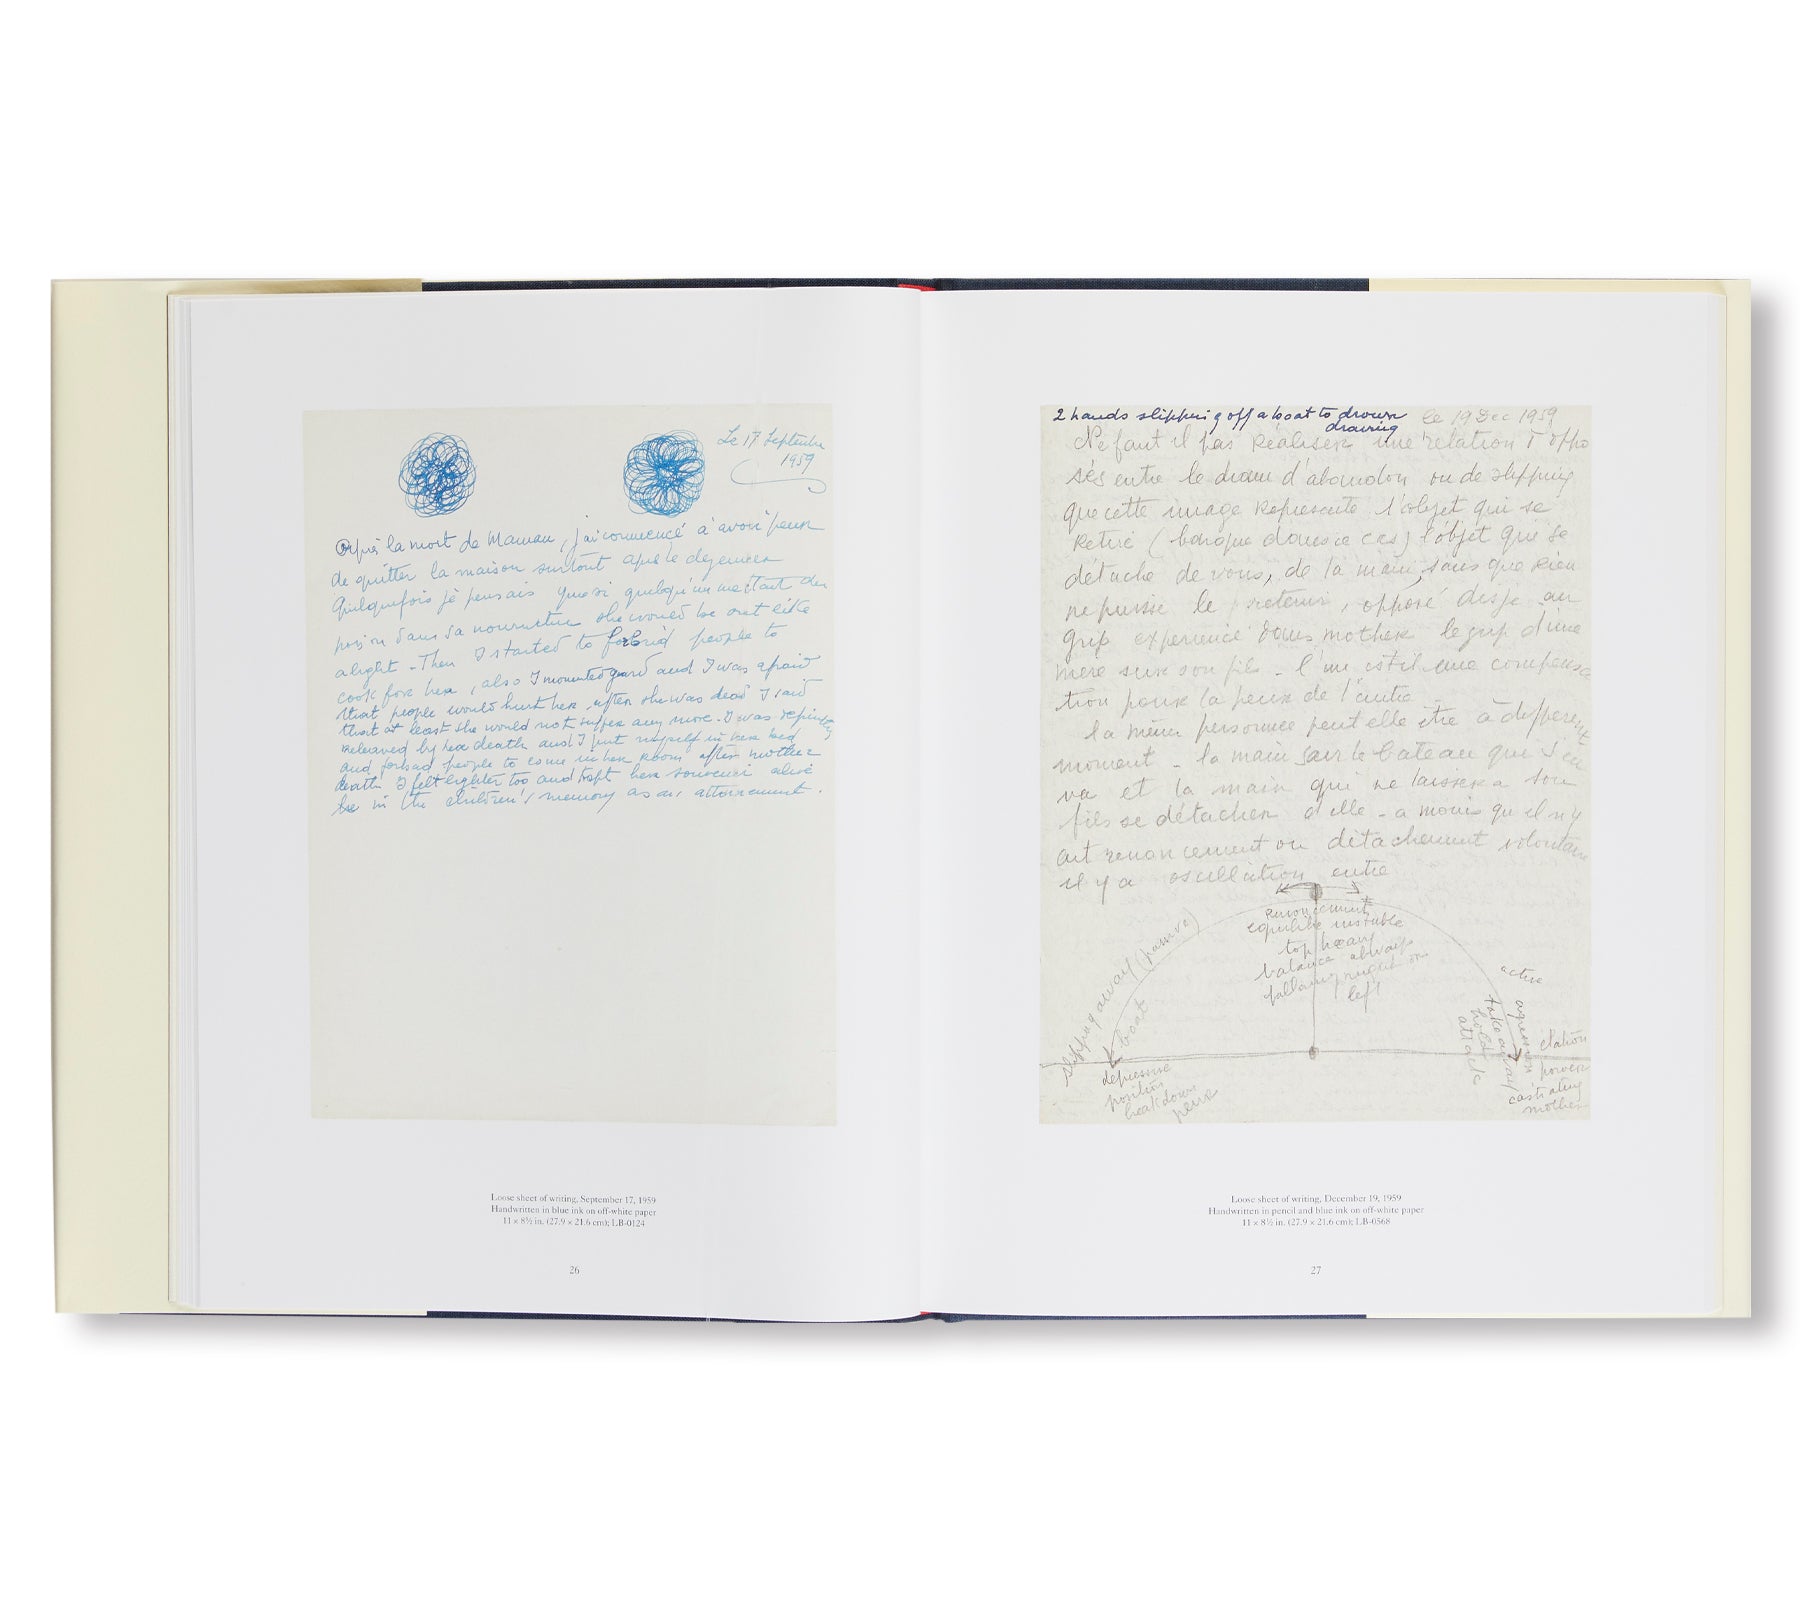 Le 17 Septembre
1959
Après la mort de Maman, j'ai commencé à avoir peur
de quitter la maison surtout apès le dejeuner
Quelquefois je pensais que si quelqu'un mettait du
poison dans sa nourriture she would be out like
alight - Then I started to forbid people to
cook for her, also I mounted guard and I was afraid
that people would hurt her. after she was dead I said
that at least she would not suffer any more - I was definitely
releaved by her death and I put myself in her bed
and forbad people to come in her room after mother
death I felt lighter too and kept her souvenir alive
be in the children's memory as an attornement.
Loose sheet of writing, September 17, 1959
Handwritten in blue ink on off-white paper
11 × 8½ in. (27.9 × 21.6 cm); LB-0124
26
2 hands slipping off a boat to drown
drawing
le 19 Dec 1959
Ne faut il pas réaliser une relation d'oppo
sés entre le drame d'abandon ou de slipping
que cette image represente l'objet qui se
retire (barque dans ce cas) l'objet qui se
détache de vous, de la main, sans que rien
ne puisse le retenir, opposé disje au
grip experience dans mother le grip d'une
mère sur son fils - l'un est il une compensa
tion pour la peur de l'autre
la même personne peut elle être à different
moment - la main sur le bateau que s'en
va et la main qui ne laissera son
fils se détacher d'elle - a moins qu il n y
ait renoncement ou détachement volontaire
il y a oscillation entre
renoncement
equilibre instable
top heavy
balance always
falling right or
left
slipping away (passive)
boat
depressive
position
breakdown
peur
active
agression
take away
hold
attack
élation
power
castrating
mother
Loose sheet of writing, December 19, 1959
Handwritten in pencil and blue ink on off-white paper
11 × 8½ in. (27.9 × 21.6 cm); LB-0568
27